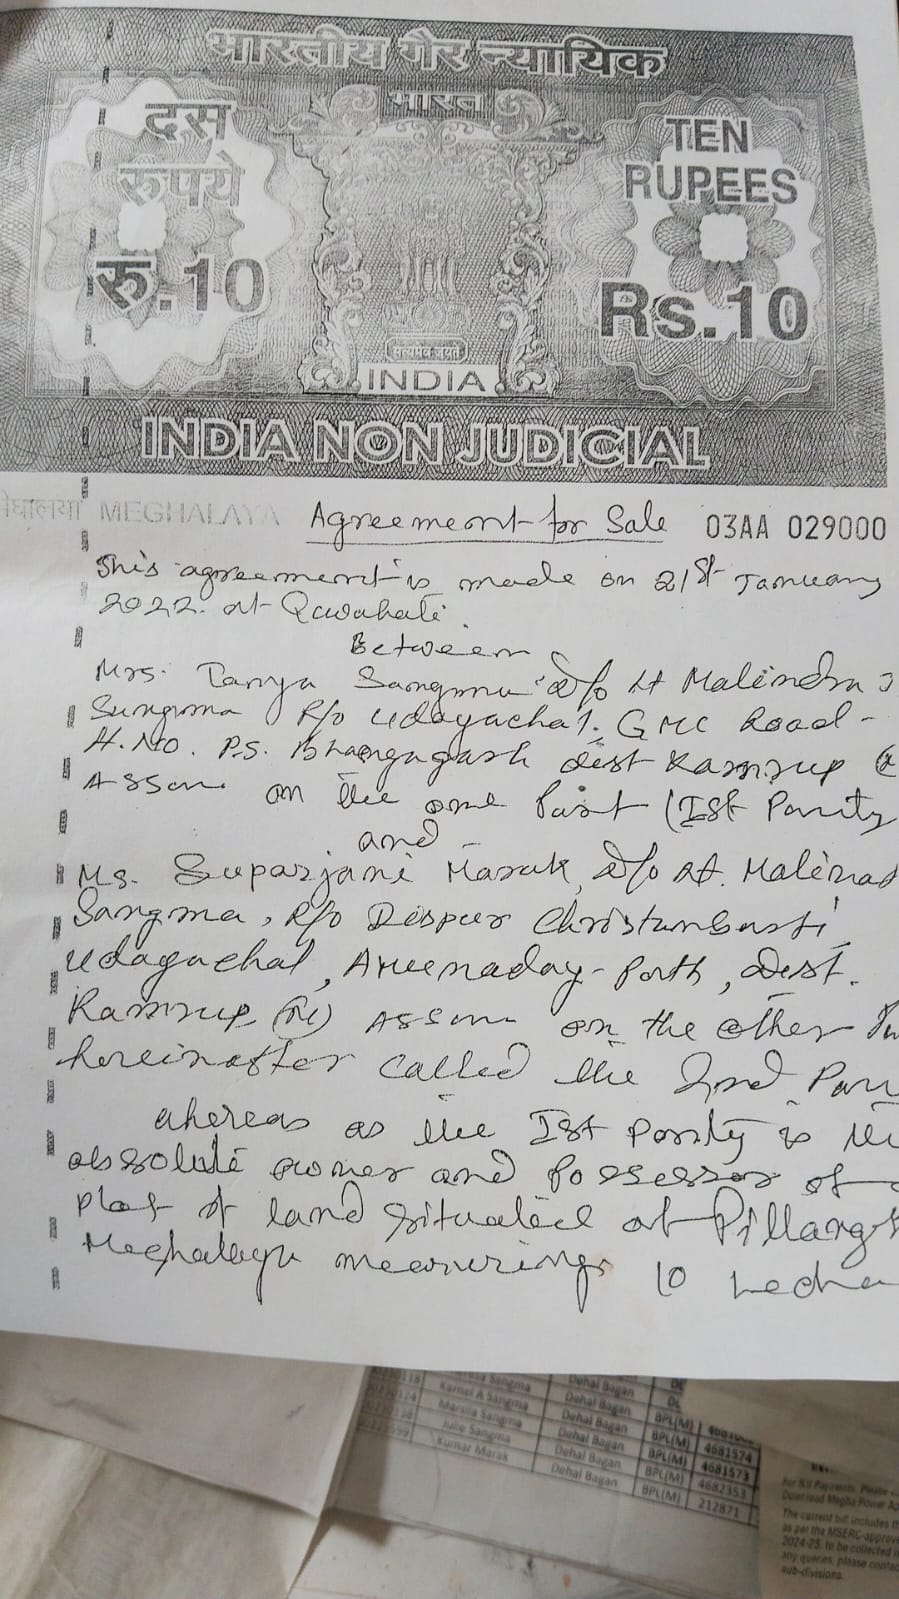 भारतीय गैर न्यायिक
भारत
दस
रुपये
रु.10
TEN
RUPEES
Rs.10
सत्यमेव जयते
INDIA
INDIA NON JUDICIAL
मेघालया MEGHALAYA
Agreement for Sale 03AA 029000
This agreement is made on 21st January
2022. at Guwahati
Between
Mrs. Tanya Sangma D/o Lt Malindra
Sangma R/o Udayachal, GMC Road -
H.No. P.S. Bhangagarh dist Kamrup
Assam on the one Part (Ist Party
and
Ms. Suparjani Marak, D/o Lt.
Sangma, R/o Dispur Christanbasti
Udayachal, Path, Dist.
Kamrup (M) Assam on the other
hereinafter called the 2nd
whereas as the Ist Party is the
absolute owner and Possessor of
plot of land situated at
Meghalaya measuring 10 Lecha
Kamal A Sangma Dehal Bagan DL
Dehal Bagan BPL(M)
Julie Sangma Dehal Bagan BPL(M) 4681574
Kumar Marak Dehal Bagan BPL(M) 4681573
Dehal Bagan BPL(M) 4682353
BPL(M) 212871
Payments, Please
Download Megha Power
The current bill includes
as per the MSERC-approve
2024-25, to be collected
any queries, please contac
sub-divisions.